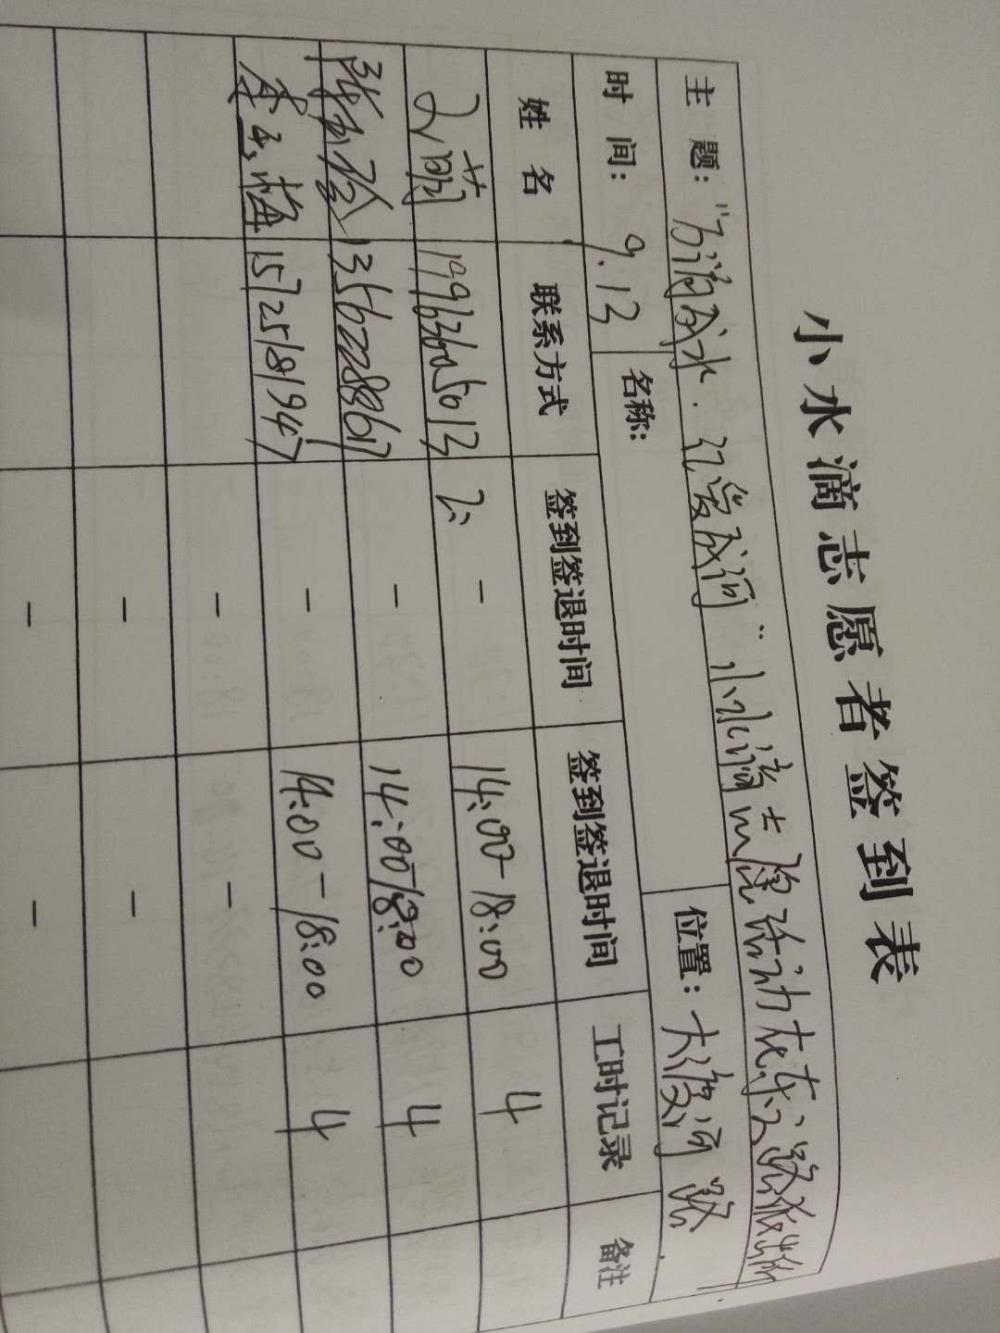 小水滴志愿者签到表
主 题："万滴成水·汇爱成河"小水滴志愿活动
时 间：9.13 名称： 位置：大渡河路
姓 名 联系方式 签到签退时间 签到签退时间 工时记录 备注
19963605613 - 14:00-18:00 4
13562288617 - 14:00-18:00 4
李玉梅 15725181947 - 14:00-18:00 4
- -
- -
- -